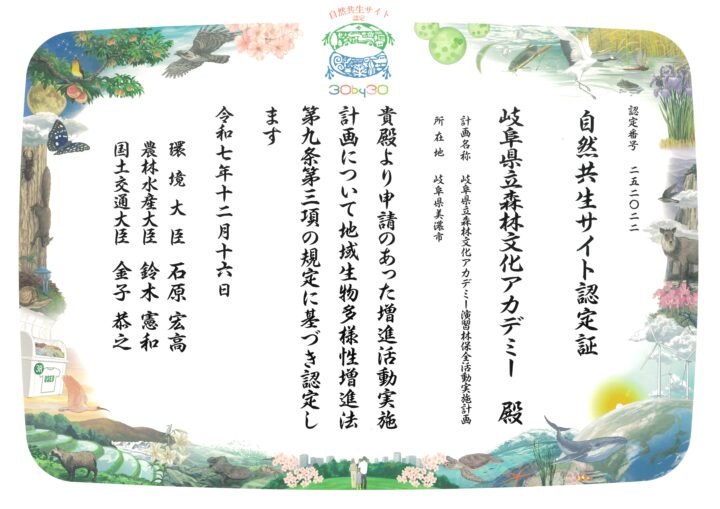 自然共生サイト
認定
30by30
認定番号 二五二〇二二
自然共生サイト認定証
岐阜県立森林文化アカデミー 殿
計画名称 岐阜県立森林文化アカデミー演習林保全活動実施計画
所在地 岐阜県美濃市
貴殿より申請のあった増進活動実施
計画について地域生物多様性増進法
第九条第三項の規定に基づき認定し
ます
令和七年十二月十六日
環境大臣 石原宏高
農林水産大臣 鈴木憲和
国土交通大臣 金子恭之
3R
USED